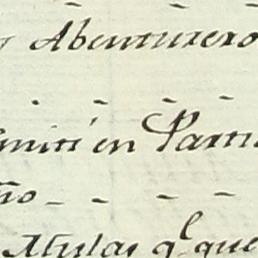 y Abenturero
emiti en Parti
ño - - - -
Mulas q.l que